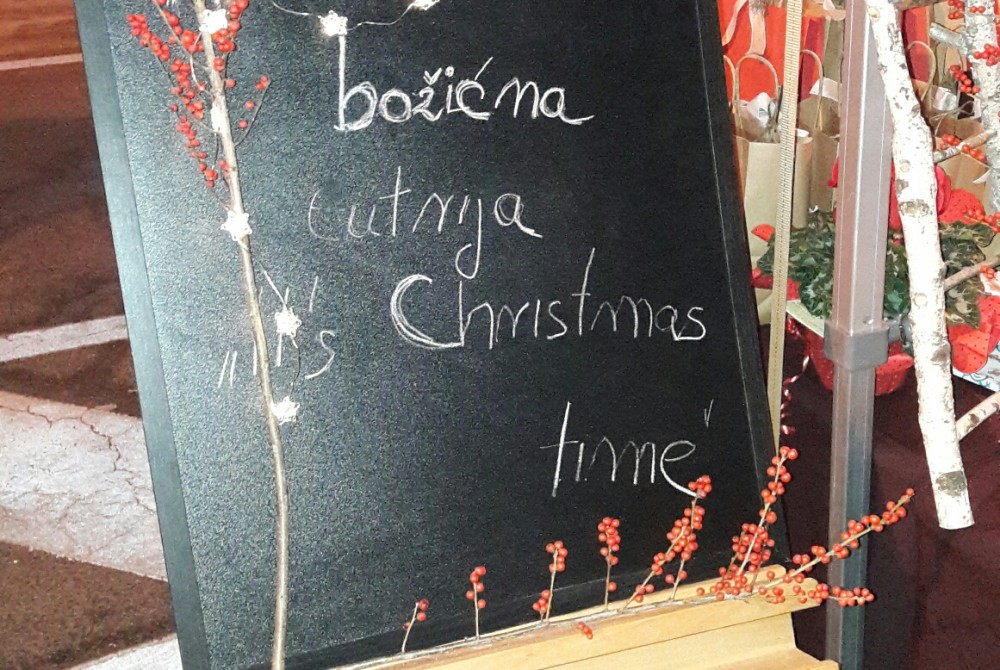 božićna
lutrija
„It's Christmas
time"